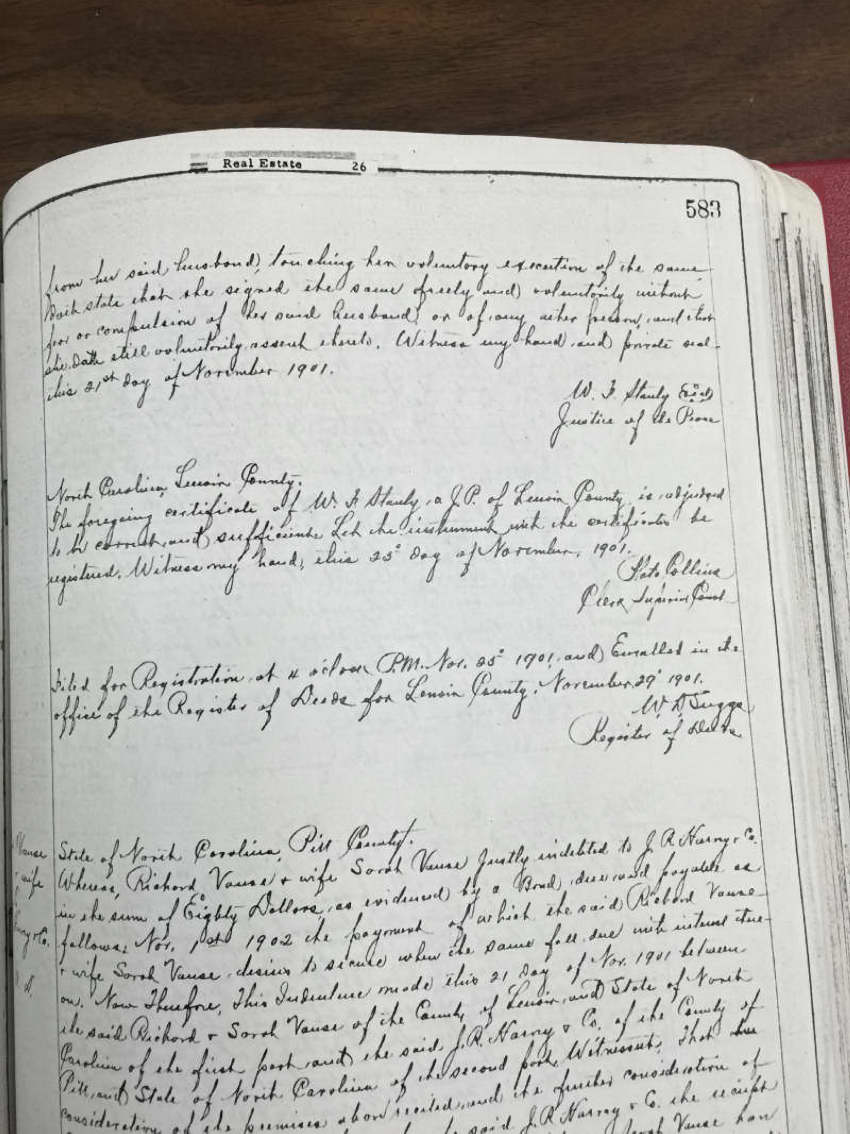 Real Estate 26
583
from her said husband, touching her voluntary execution of the same
doth state that she signed the same freely and voluntarily without
fear or compulsion of her said husband, or of any other person, and that
she doth still voluntarily assent thereto. Witness my hand and private seal
this 21st day of November 1901.
W. F. Stanly
Justice of the Peace
North Carolina, Lenoir County.
The foregoing certificate of W. F. Stanly, a J.P. of Lenoir County, is adjudged
to be correct and sufficient. Let the instrument with the certificates be
registered. Witness my hand, this 25" day of November, 1901.
Plato Collins
Clerk Superior Court
Filed for Registration at 4 o'clock P.M. Nov. 25" 1901, and Enrolled in the
office of the Register of Deeds for Lenoir County, November 29" 1901.
W. D. Suggs
Register of Deeds
State of North Carolina, Pitt County.
Whereas, Richard Vause & wife Sarah Vause Justly indebted to J. R. Harvy & Co.
in the sum of Eighty Dollars, as evidenced by a Bond, due and payable as
follows: Nov. 1st 1902 the payment of which the said Richard Vause
& wife Sarah Vause desires to secure when the same fall due with interest there-
on. Now Therefore, This Indenture made this 21 day of Nov. 1901 between
the said Richard & Sarah Vause of the County of Lenoir and State of North
Carolina of the first part and the said J. R. Harvy & Co. of the County of
Pitt, and State of North Carolina of the second part, Witnesseth: That
consideration of the premises above recited, and the further consideration of
said J. R. Harvy & Co. the receipt
Sarah Vause
Vause
& wife
& Co.